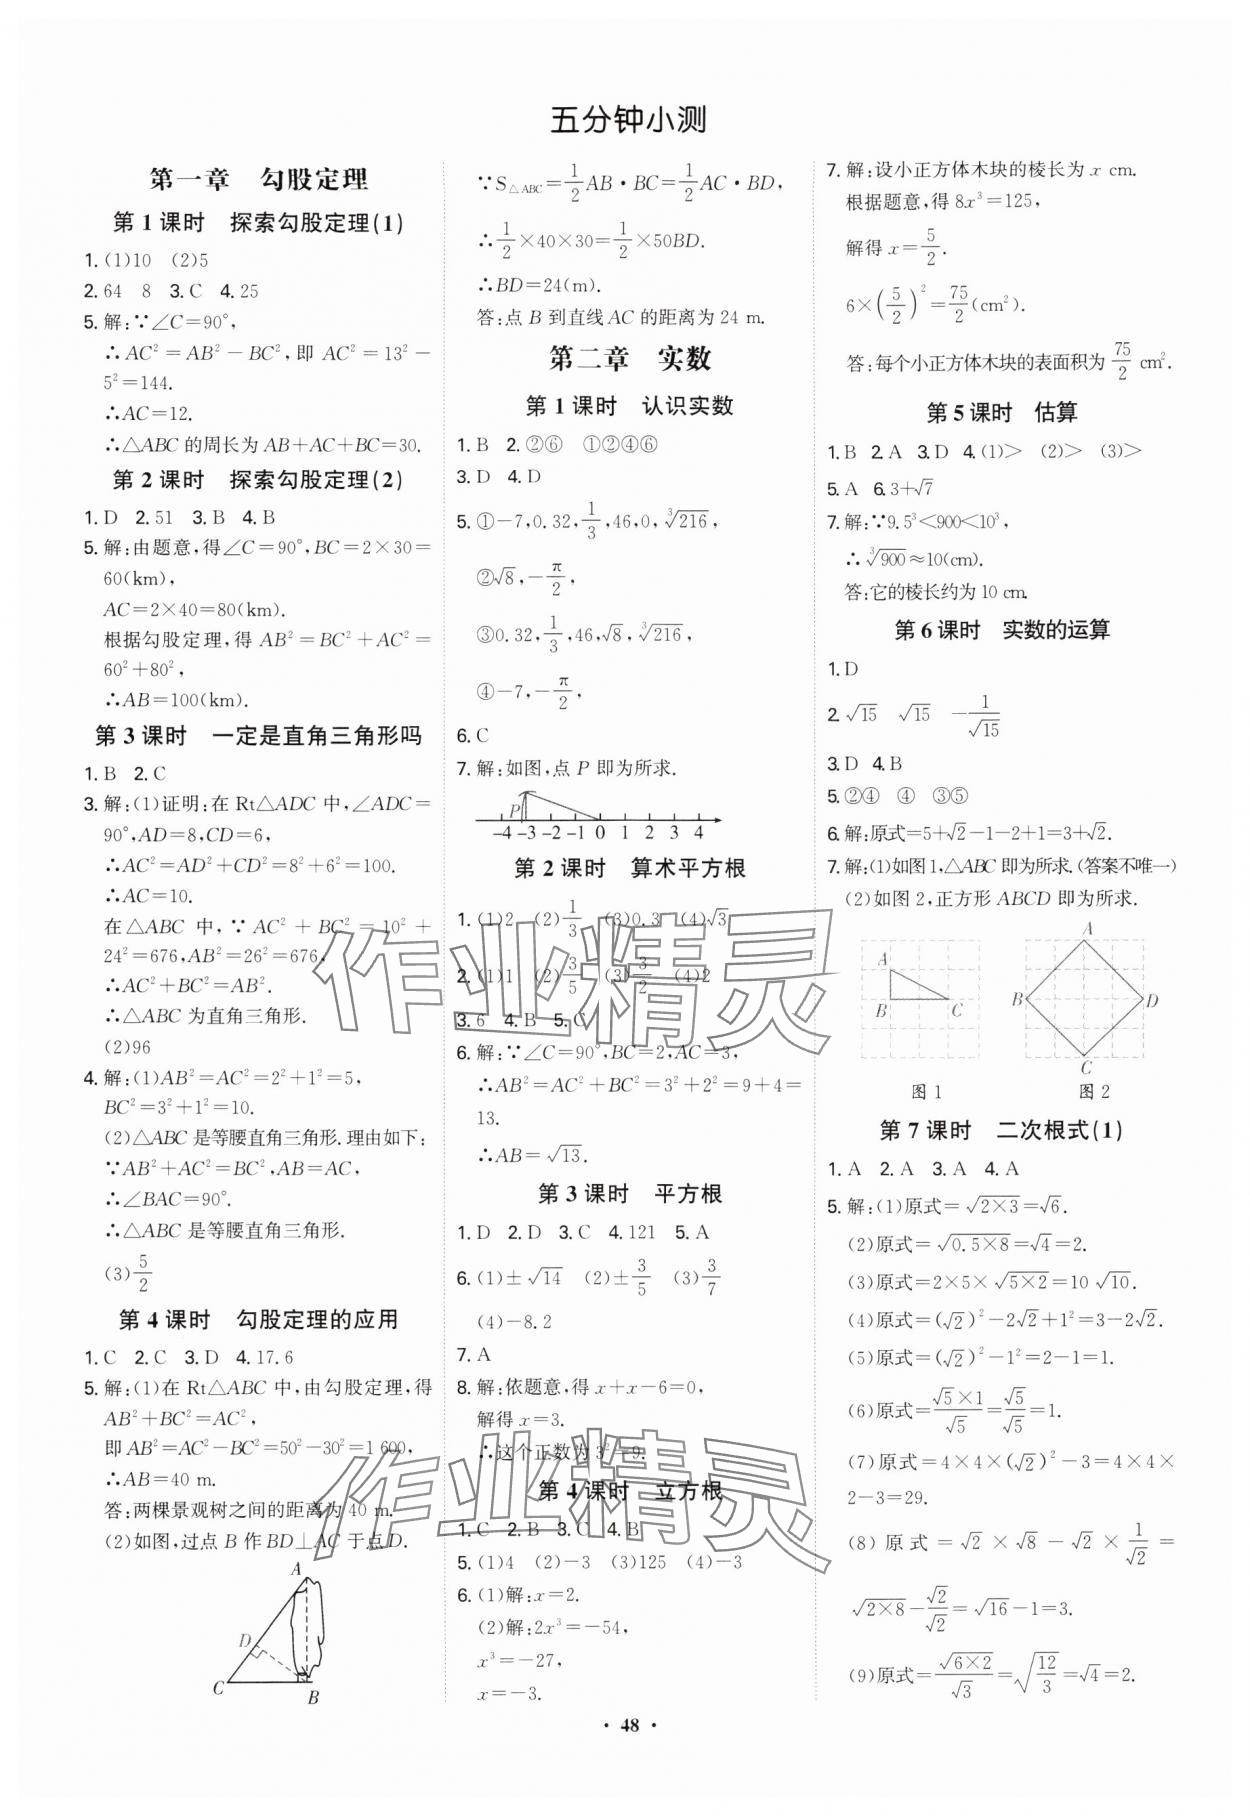 五分钟小测
第一章 勾股定理
第1课时 探索勾股定理(1)
1. (1)10 (2)5
2. 64 8 3. C 4. 25
5. 解:∵∠C=90°,
∴AC²=AB²-BC²,即 AC²=13²-
5²=144.
∴AC=12.
∴△ABC的周长为AB+AC+BC=30.
第2课时 探索勾股定理(2)
1. D 2. 51 3. B 4. B
5. 解:由题意,得∠C=90°,BC=2×30=
60(km),
AC=2×40=80(km).
根据勾股定理,得 AB²=BC²+AC²=
60²+80²,
∴AB=100(km).
第3课时 一定是直角三角形吗
1. B 2. C
3. 解:(1)证明:在 Rt△ADC 中,∠ADC=
90°,AD=8,CD=6,
∴AC²=AD²+CD²=8²+6²=100.
∴AC=10.
在△ABC 中,∵AC²+BC²=10²+
24²=676,AB²=26²=676,
∴AC²+BC²=AB².
∴△ABC 为直角三角形.
(2)96
4. 解:(1)AB²=AC²=2²+1²=5,
BC²=3²+1²=10.
(2)△ABC 是等腰直角三角形.理由如下:
∵AB²+AC²=BC²,AB=AC,
∴∠BAC=90°.
∴△ABC 是等腰直角三角形.
(3)5/2
第4课时 勾股定理的应用
1. C 2. C 3. D 4. 17.6
5. 解:(1)在 Rt△ABC 中,由勾股定理,得
AB²+BC²=AC²,
即 AB²=AC²-BC²=50²-30²=1 600,
∴AB=40 m.
答:两棵景观树之间的距离为 40 m.
(2)如图,过点 B 作 BD⊥AC 于点 D.
A
D
C
B
∵S△ABC=1/2AB·BC=1/2AC·BD,
∴1/2×40×30=1/2×50BD.
∴BD=24(m).
答:点 B 到直线 AC 的距离为 24 m.
第二章 实数
第1课时 认识实数
1. B 2. ②⑥ ①②④⑥
3. D 4. D
5. ①-7,0.32,1/3,46,0,∛216,
②√8,-π/2,
③0.32,1/3,46,√8,∛216,
④-7,-π/2,
6. C
7. 解:如图,点 P 即为所求.
P
-4 -3 -2 -1 0 1 2 3 4
第2课时 算术平方根
1. (1)2 (2)1/3 (3)0.3 (4)√3
2. (1)1 (2)3/5 (3)3/2 (4)2
3. 6 4. B 5. C
6. 解:∵∠C=90°,BC=2,AC=3,
∴AB²=AC²+BC²=3²+2²=9+4=
13.
∴AB=√13.
第3课时 平方根
1. D 2. D 3. C 4. 121 5. A
6. (1)±√14 (2)±3/5 (3)3/7
(4)-8.2
7. A
8. 解:依题意,得 x+x-6=0,
解得 x=3.
∴这个正数为 3²=9.
第4课时 立方根
1. C 2. B 3. C 4. B
5. (1)4 (2)-3 (3)125 (4)-3
6. (1)解:x=2.
(2)解:2x³=-54,
x³=-27,
x=-3.
7. 解:设小正方体木块的棱长为 x cm.
根据题意,得 8x³=125,
解得 x=5/2.
6×(5/2)²=75/2(cm²).
答:每个小正方体木块的表面积为 75/2 cm².
第5课时 估算
1. B 2. A 3. D 4. (1)> (2)> (3)>
5. A 6. 3+√7
7. 解:∵9.5³<900<10³,
∴∛900≈10(cm).
答:它的棱长约为 10 cm.
第6课时 实数的运算
1. D
2. √15 √15 -1/√15
3. D 4. B
5. ②④ ④ ③⑤
6. 解:原式=5+√2-1-2+1=3+√2.
7. 解:(1)如图1,△ABC 即为所求.(答案不唯一)
(2)如图2,正方形 ABCD 即为所求.
A
B C
图1
A
B D
C
图2
第7课时 二次根式(1)
1. A 2. A 3. A 4. A
5. 解:(1)原式=√(2×3)=√6.
(2)原式=√(0.5×8)=√4=2.
(3)原式=2×5×√(5×2)=10√10.
(4)原式=(√2)²-2√2+1²=3-2√2.
(5)原式=(√2)²-1²=2-1=1.
(6)原式=√(5×1)/√5=√5/√5=1.
(7)原式=4×4×(√2)²-3=4×4×
2-3=29.
(8)原式=√2×√8-√2×1/√2=
√(2×8)-√2/√2=√16-1=3.
(9)原式=√(6×2)/√3=√(12/3)=√4=2.
作业精灵
作业精灵
·48·